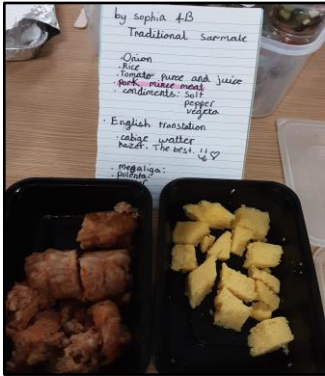 by sophia 4B
Traditional sarmale
· Onion
· Rice
· Tomato puree and juice
· pork mince meat
· condiments: Salt
pepper
vegeta
· English translation
· cabige watter
hazer. The best. !!
· mamaliga:
polenta